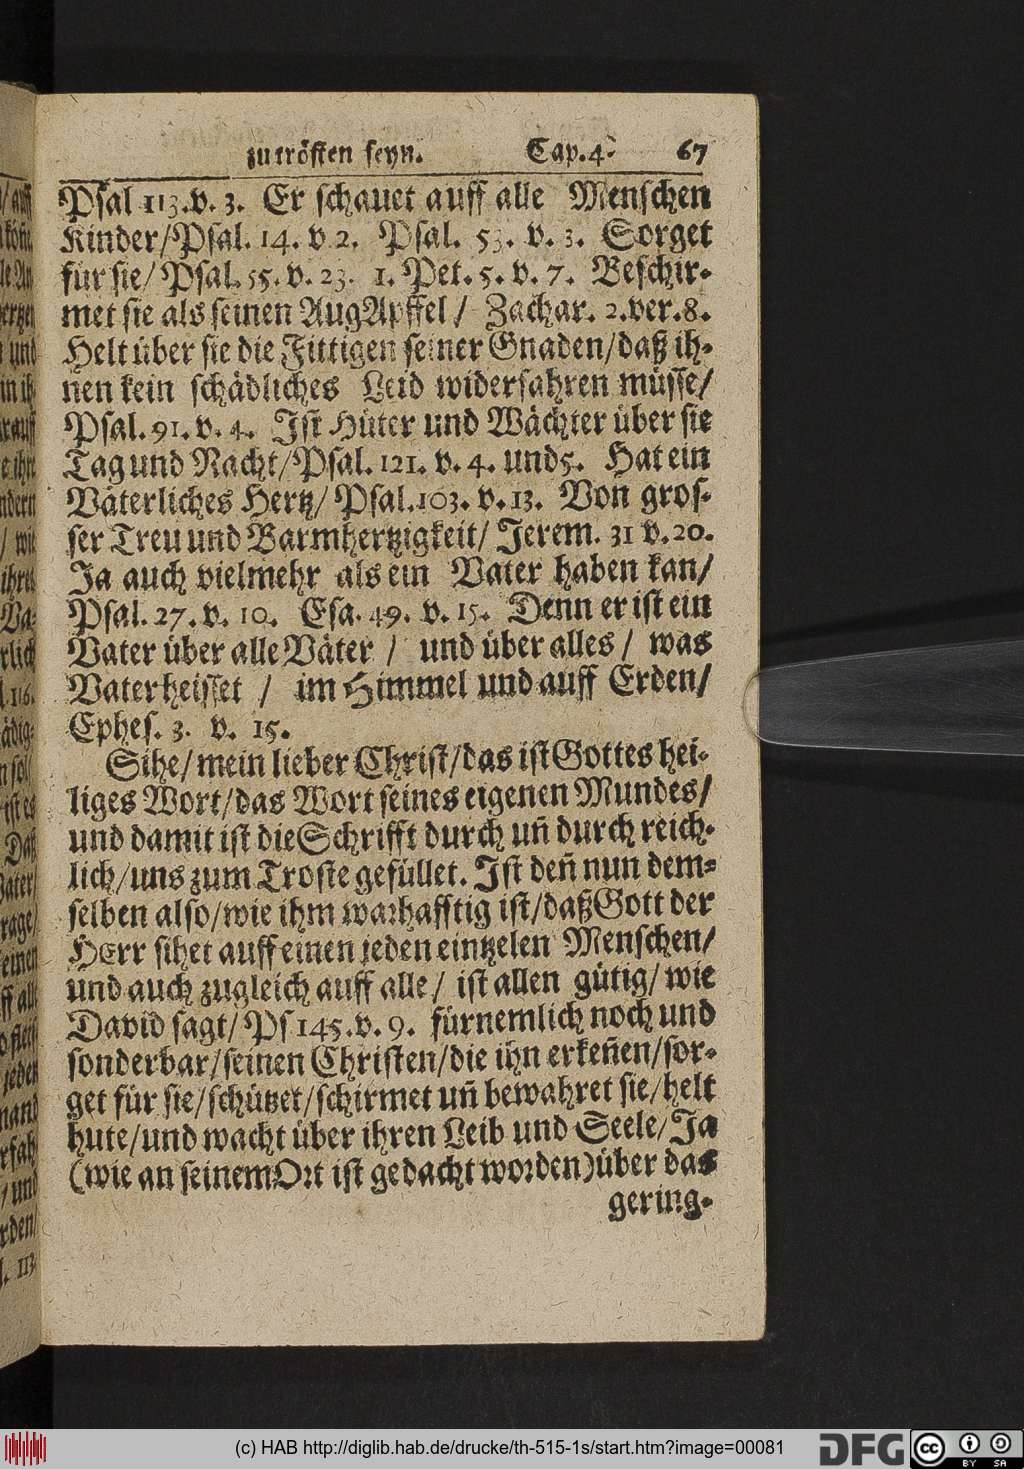 zu trösten seyn. Cap. 4. 67
Psal 113. v. 3. Er schauet auff alle Menschen
Kinder/Psal. 14. v 2. Psal. 53. v. 3. Sorget
für sie/ Psal. 55. v. 23. 1. Pet. 5. v. 7. Beschir-
met sie als seinen AugApffel/ Zachar. 2. ver. 8.
Helt über sie die Fittigen seiner Gnaden/daß ih-
nen kein schädliches Leid widerfahren müsse/
Psal. 91. v. 4. Ist Hüter und Wächter über sie
Tag und Nacht/Psal. 121. v. 4. und 5. Hat ein
Väterliches Hertz/ Psal. 103. v. 13. Von gros-
ser Treu und Barmhertzigkeit/ Jerem. 31 v. 20.
Ja auch vielmehr als ein Vater haben kan/
Psal. 27. v. 10. Esa. 49. v. 15. Denn er ist ein
Vater über alle Väter / und über alles / was
Vater heisset / im Himmel und auff Erden/
Ephes. 3. v. 15.
Sihe/mein lieber Christ/das ist Gottes hei-
liges Wort/das Wort seines eigenen Mundes/
und damit ist die Schrifft durch uñ durch reich-
lich/uns zum Troste gefüllet. Ist deñ nun dem-
selben also/wie ihm warhafftig ist/daß Gott der
HErr sihet auff einen jeden eintzelen Menschen/
und auch zugleich auff alle/ ist allen gütig/ wie
David sagt/ Ps 145. v. 9. fürnemlich noch und
sonderbar/seinen Christen/die ihn erkeñen/sor-
get für sie/schützet/schirmet uñ bewahret sie/helt
hute/und wacht über ihren Leib und Seele/Ja
(wie an seinem Ort ist gedacht worden) über das
gering-
(c) HAB http://diglib.hab.de/drucke/th-515-1s/start.htm?image=00081
DFG
cc
BY SA